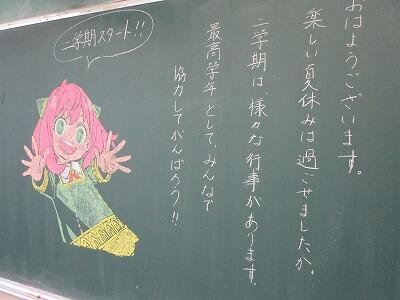 おはようございます。
楽しい夏休みは過ごせましたか。
二学期は、様々な行事があります。
最高学年として、みんなで
協力してがんばろう!!
二学期スタート!!